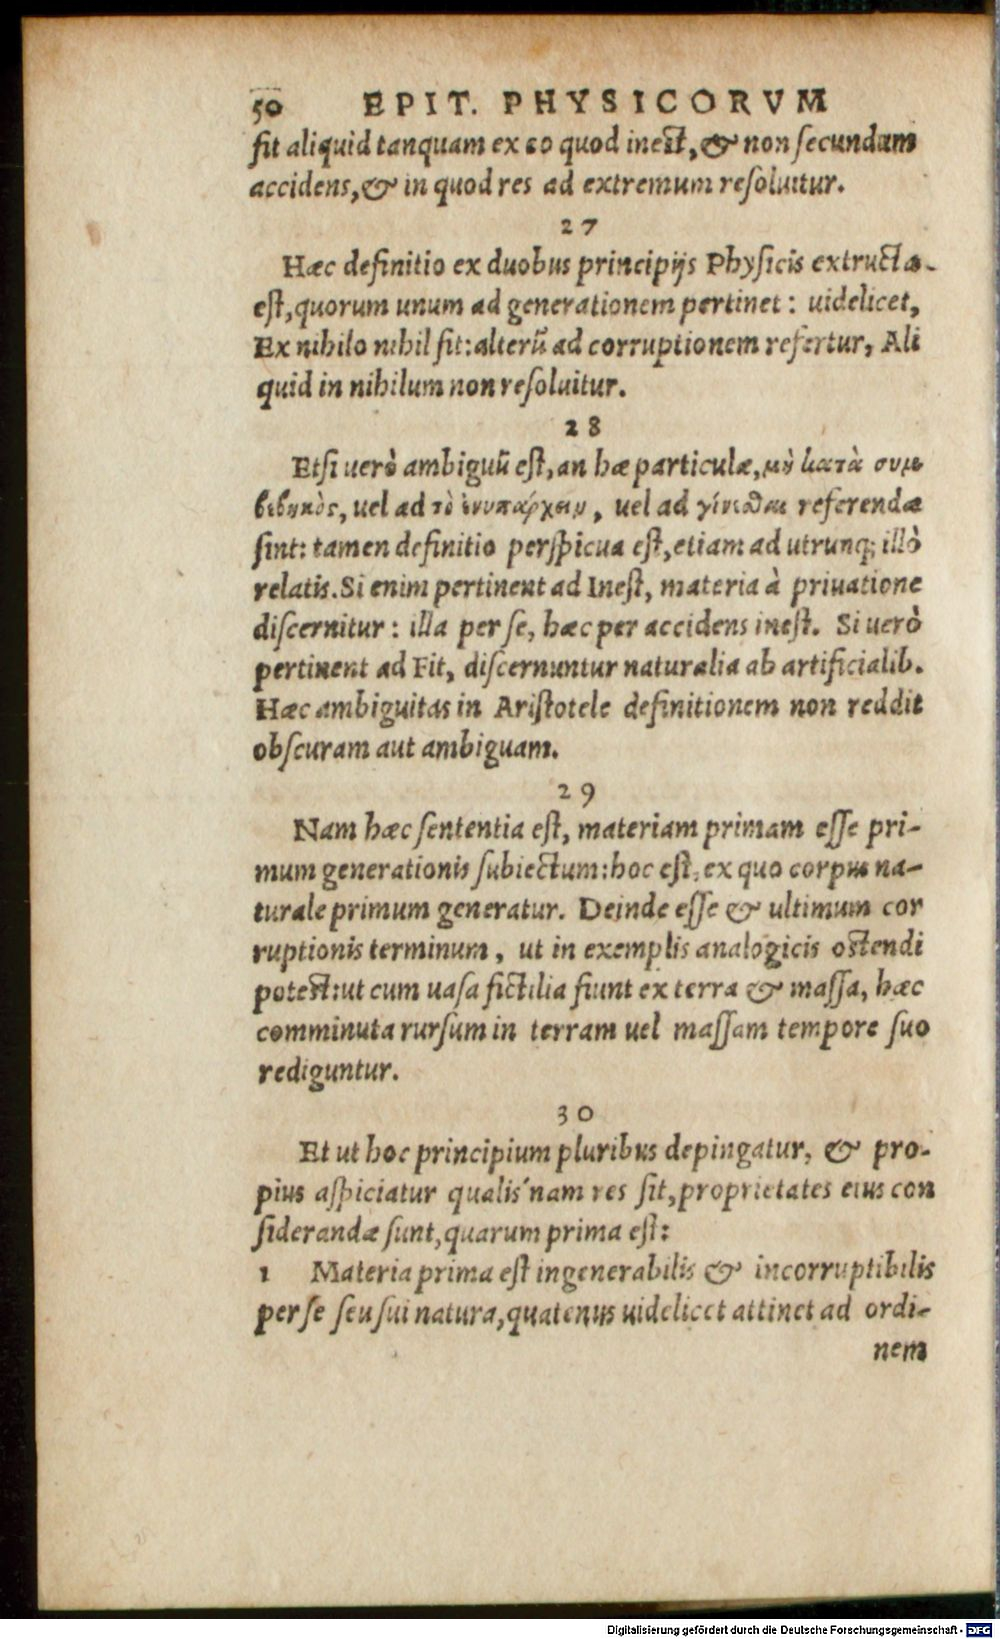 50 EPIT. PHYSICORVM
fit aliquid tanquam ex eo quod inest, & non secundum
accidens, & in quod res ad extremum resoluitur.
27
Hæc definitio ex duobus principijs Physicis extructa
est, quorum unum ad generationem pertinet: uidelicet,
Ex nihilo nihil fit: alterũ ad corruptionem refertur, Ali
quid in nihilum non resoluitur.
28
Etsi uerò ambiguũ est, an hæ particulæ, μὴ κατὰ συμ
βεβηκὸς, uel ad τὸ ἐνυπάρχειν, uel ad γίνεσθαι referendæ
sint: tamen definitio perspicua est, etiam ad utrunq; illò
relatis. Si enim pertinent ad Inest, materia à priuatione
discernitur: illa per se, hæc per accidens inest. Si uerò
pertinent ad Fit, discernuntur naturalia ab artificialib.
Hæc ambiguitas in Aristotele definitionem non reddit
obscuram aut ambiguam.
29
Nam hæc sententia est, materiam primam esse pri-
mum generationis subiectum: hoc est, ex quo corpus na-
turale primum generatur. Deinde esse & ultimum cor
ruptionis terminum, ut in exemplis analogicis ostendi
potest: ut cum uasa fictilia fiunt ex terra & massa, hæc
comminuta rursum in terram uel massam tempore suo
rediguntur.
30
Et ut hoc principium pluribus depingatur, & pro-
pius aspiciatur qualis'nam res sit, proprietates eius con
siderandæ sunt, quarum prima est:
1 Materia prima est ingenerabilis & incorruptibilis
per se seu sui natura, quatenus uidelicet attinet ad ordi-
nem
Digitalisierung gefördert durch die Deutsche Forschungsgemeinschaft - DFG